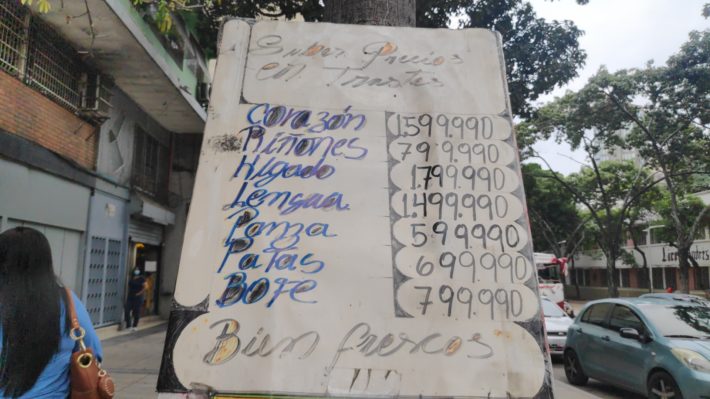 Super Precios
en Trastes
Corazón 1.599.990
Riñones 799.990
Hígado 1.799.990
Lengua 1.499.990
Panza 599.990
Patas 699.990
Bofe 799.990
Bien frescos